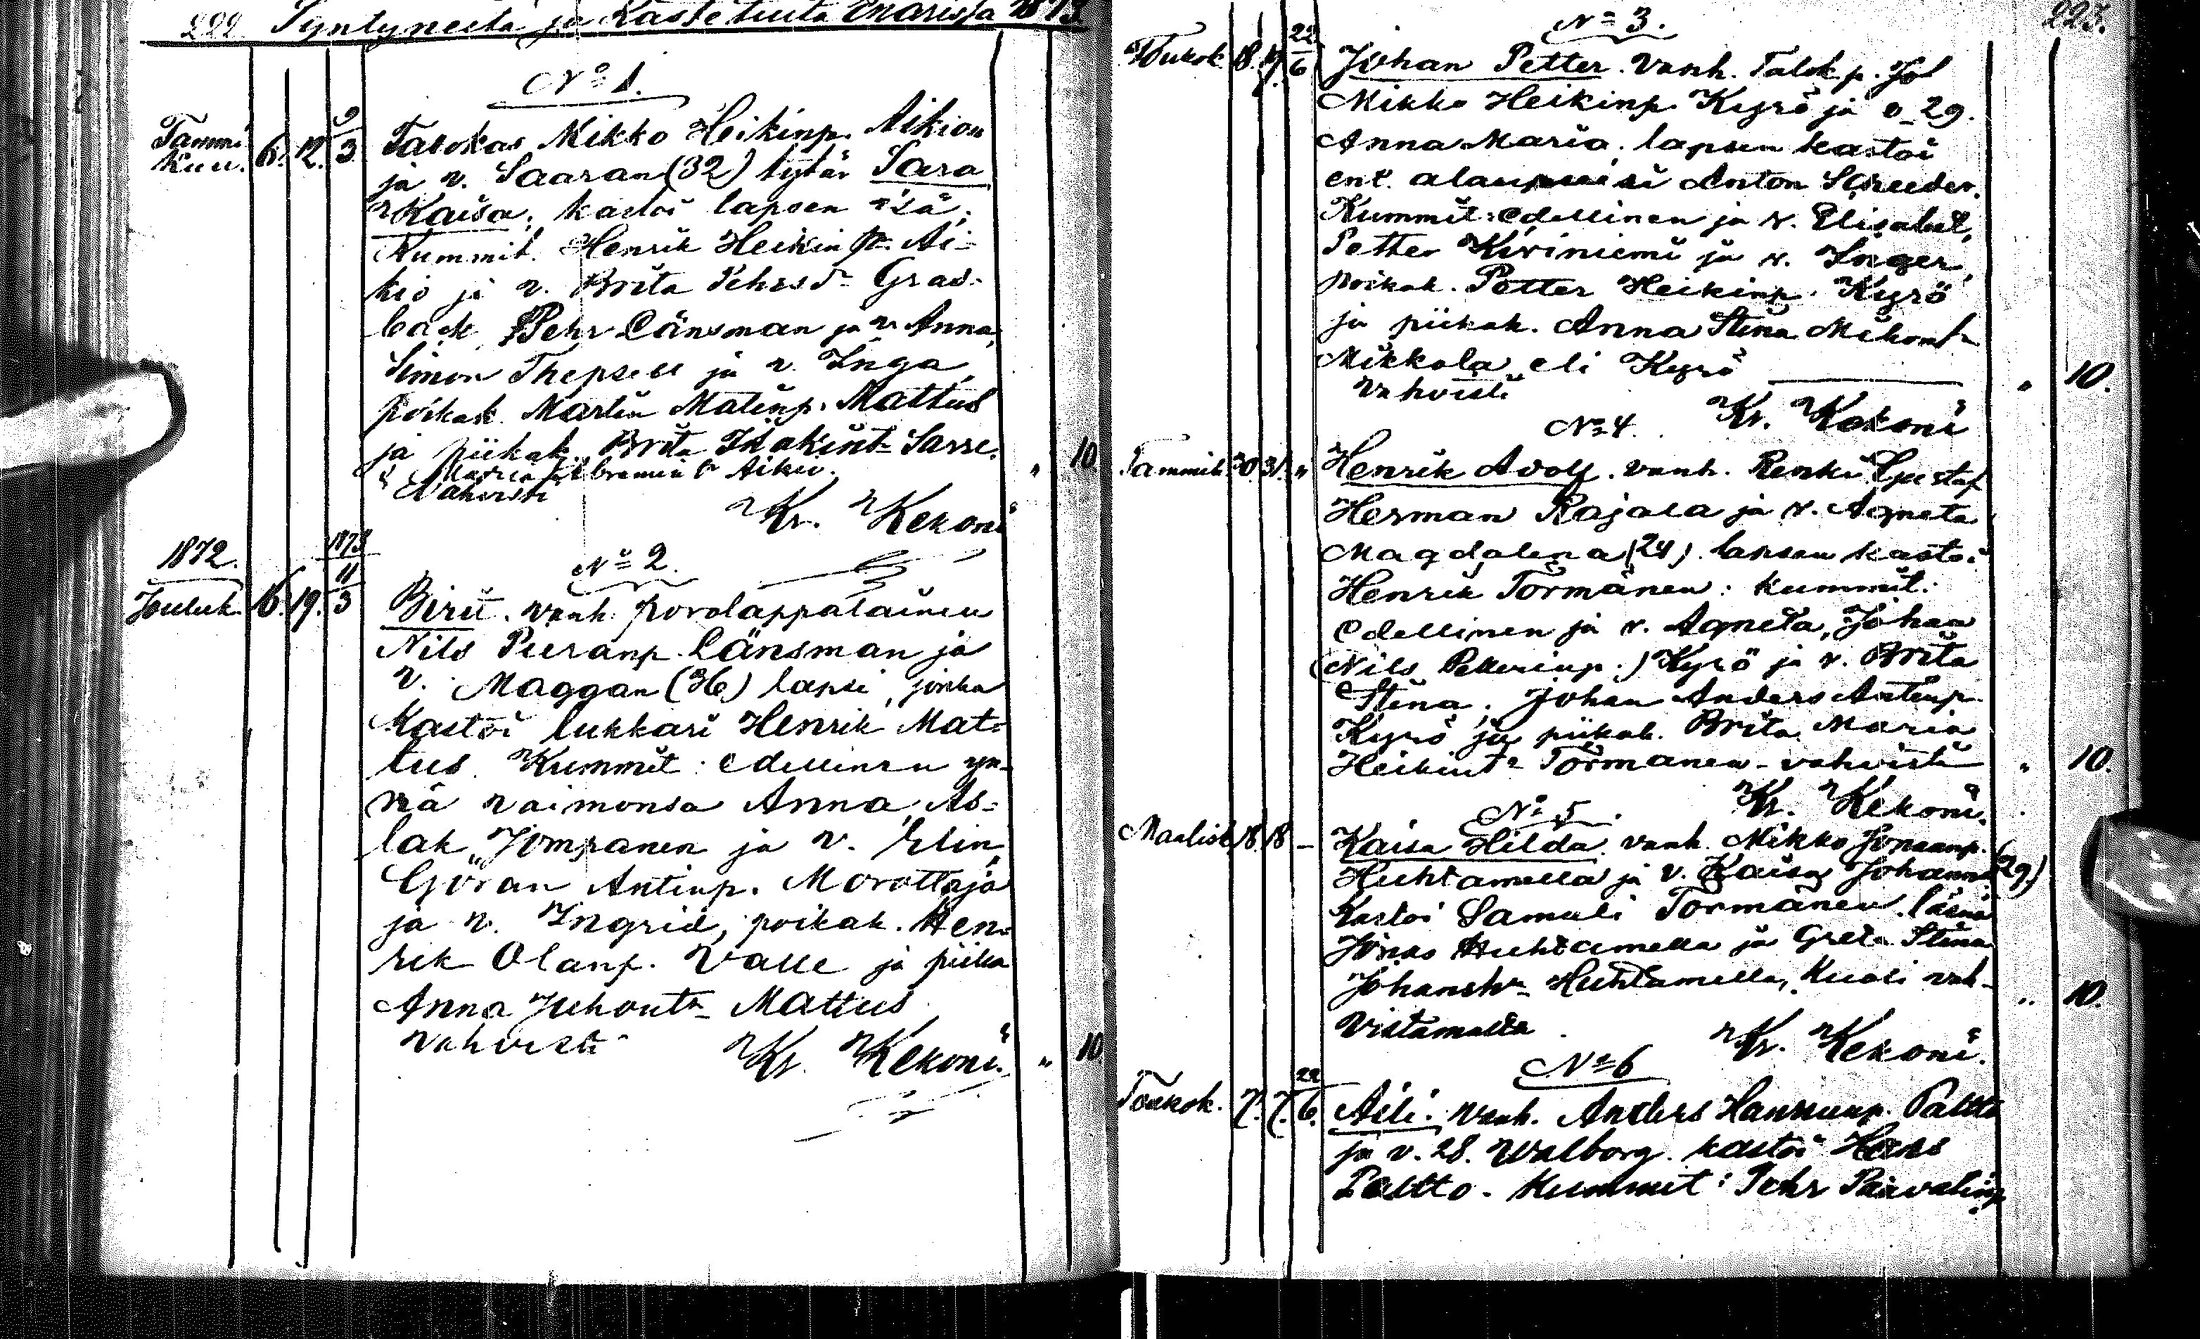 222. Syntyneitä ja Kastetuita Inarissa 1873.
N:o 1.
Tammi 6. 12. 9/3 Talokas Mikko Heikinp. Aikion
kuu.
ja v. Saaran (32) tytär Sara
Kaisa; kastoi lapsen isä;
Kummit. Henrik Heikinp. Ai-
kio ja v. Brita Pehrsdr Gras-
back, Pehr Länsman ja v. Anna,
Simon Thepsell ja v. Inga,
poikak. Martin Matinp. Mattus
ja piikak. Brita Isakintr Sarre.
Maria Abramintr Aikio.
Vahvisti
Kr. Kekoni
" 10
1872. 1873
N:o 2.
Jouluk. 16. 19. 11/3 Birit. vanh. porolappalainen
Nils Pieranp. Länsman ja
v. Maggan (36) lapsi, jonka
Kastoi lukkari Henrik Mat-
tus. Kummit: edellinen yn-
nä vaimonsa Anna, As-
lak Jompanen ja v. Elin,
Göran Antinp. Morottaja
ja v. Ingrid, poikak. Hen-
rik Olanp. Valle ja piika
Anna Juhontr Mattus
vahvisti
Kr. Kekoni.
" 10
223.
N:o 3.
Toukok. 18. 19. 22/6 Johan Petter. vanh. Talok.p. Joh
Mikko Heikinp. Kyrö ja v. 29.
Anna Maria; lapsen kastoi
ent. Anton Schreeder.
Kummit: edellinen ja v. Elisabet,
Petter Kiviniemi ja v. Inger,
poikak. Petter Heikinp. Kyrö
ja piikak. Anna Stina Mikontr
Mikkola eli Kyrö
Vahvisti
Kr. Kekoni
" 10.
N:o 4.
Tammik. 30. 31. " Henrik Adolf. vanh. Renki Gustaf
Herman Rajala ja v. Agneta
Magdalena (24). lapsen kastoi
Henrik Törmänen: kummit:
Edellinen ja v. Agneta, Johan
(Nils Petterinp.) Kyrö ja v. Brita
Stina, Johan Anders Antinp.
Kyrö ja piikak. Brita Maria
Heikintr Törmänen - vahvisti
Kr. Kekoni.
" 10.
N:o 5.
Maalisk. 18. 18 - Kaisa Hilda. vanh. Mikko Jonaanp.
Huhtamella ja v. Kaisa Johanna (29.)
Kastoi Samuli Törmänen. läsnä
Jonas Huhtamella ja Greta Stina
Johanstr Huhtamella, Kuoli vah-
vistamatta.
Kr. Kekoni.
" 10.
N:o 6
Toukok. 7. 7. 22/6. Aili. vanh. Anders Hannunp. Paltto
ja v. 28. Walborg. kastoi Hans
Paltto. Kummit: Pehr Paavalinp